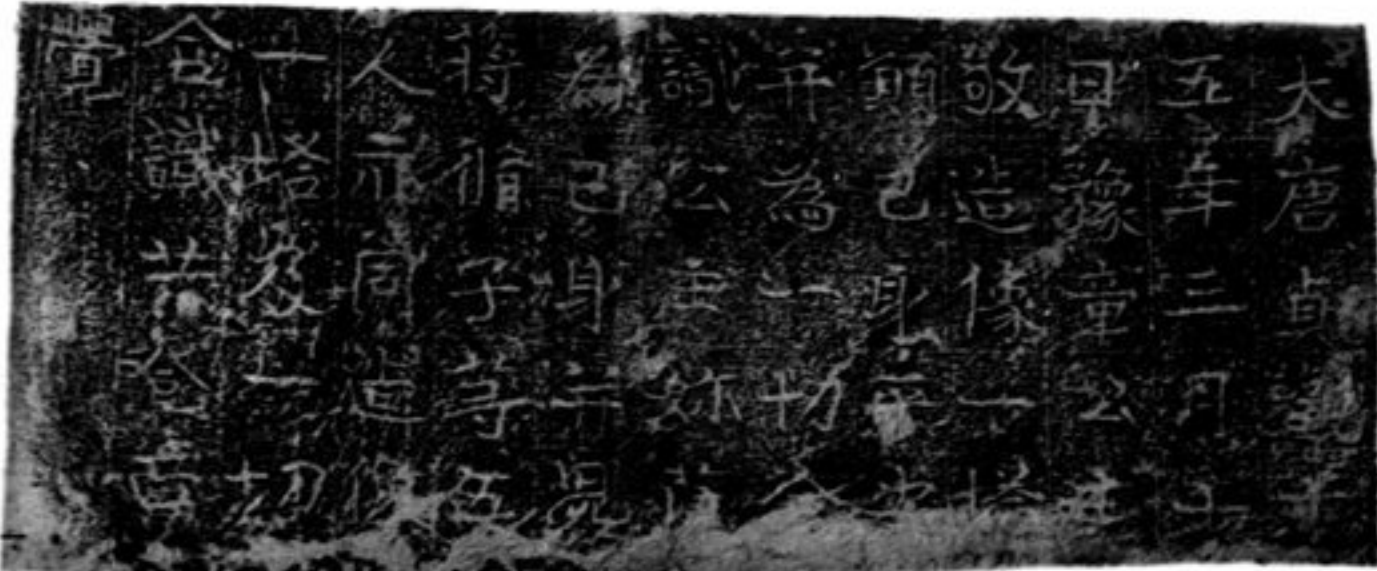 大唐貞觀十
五年三月十
日豫章公主
敬造像一塔
願己身平安
并為一切含
識公主妳
為己身并兒
蔣脩子等五
人亦同造像
一塔及一切
含識共登正
覺